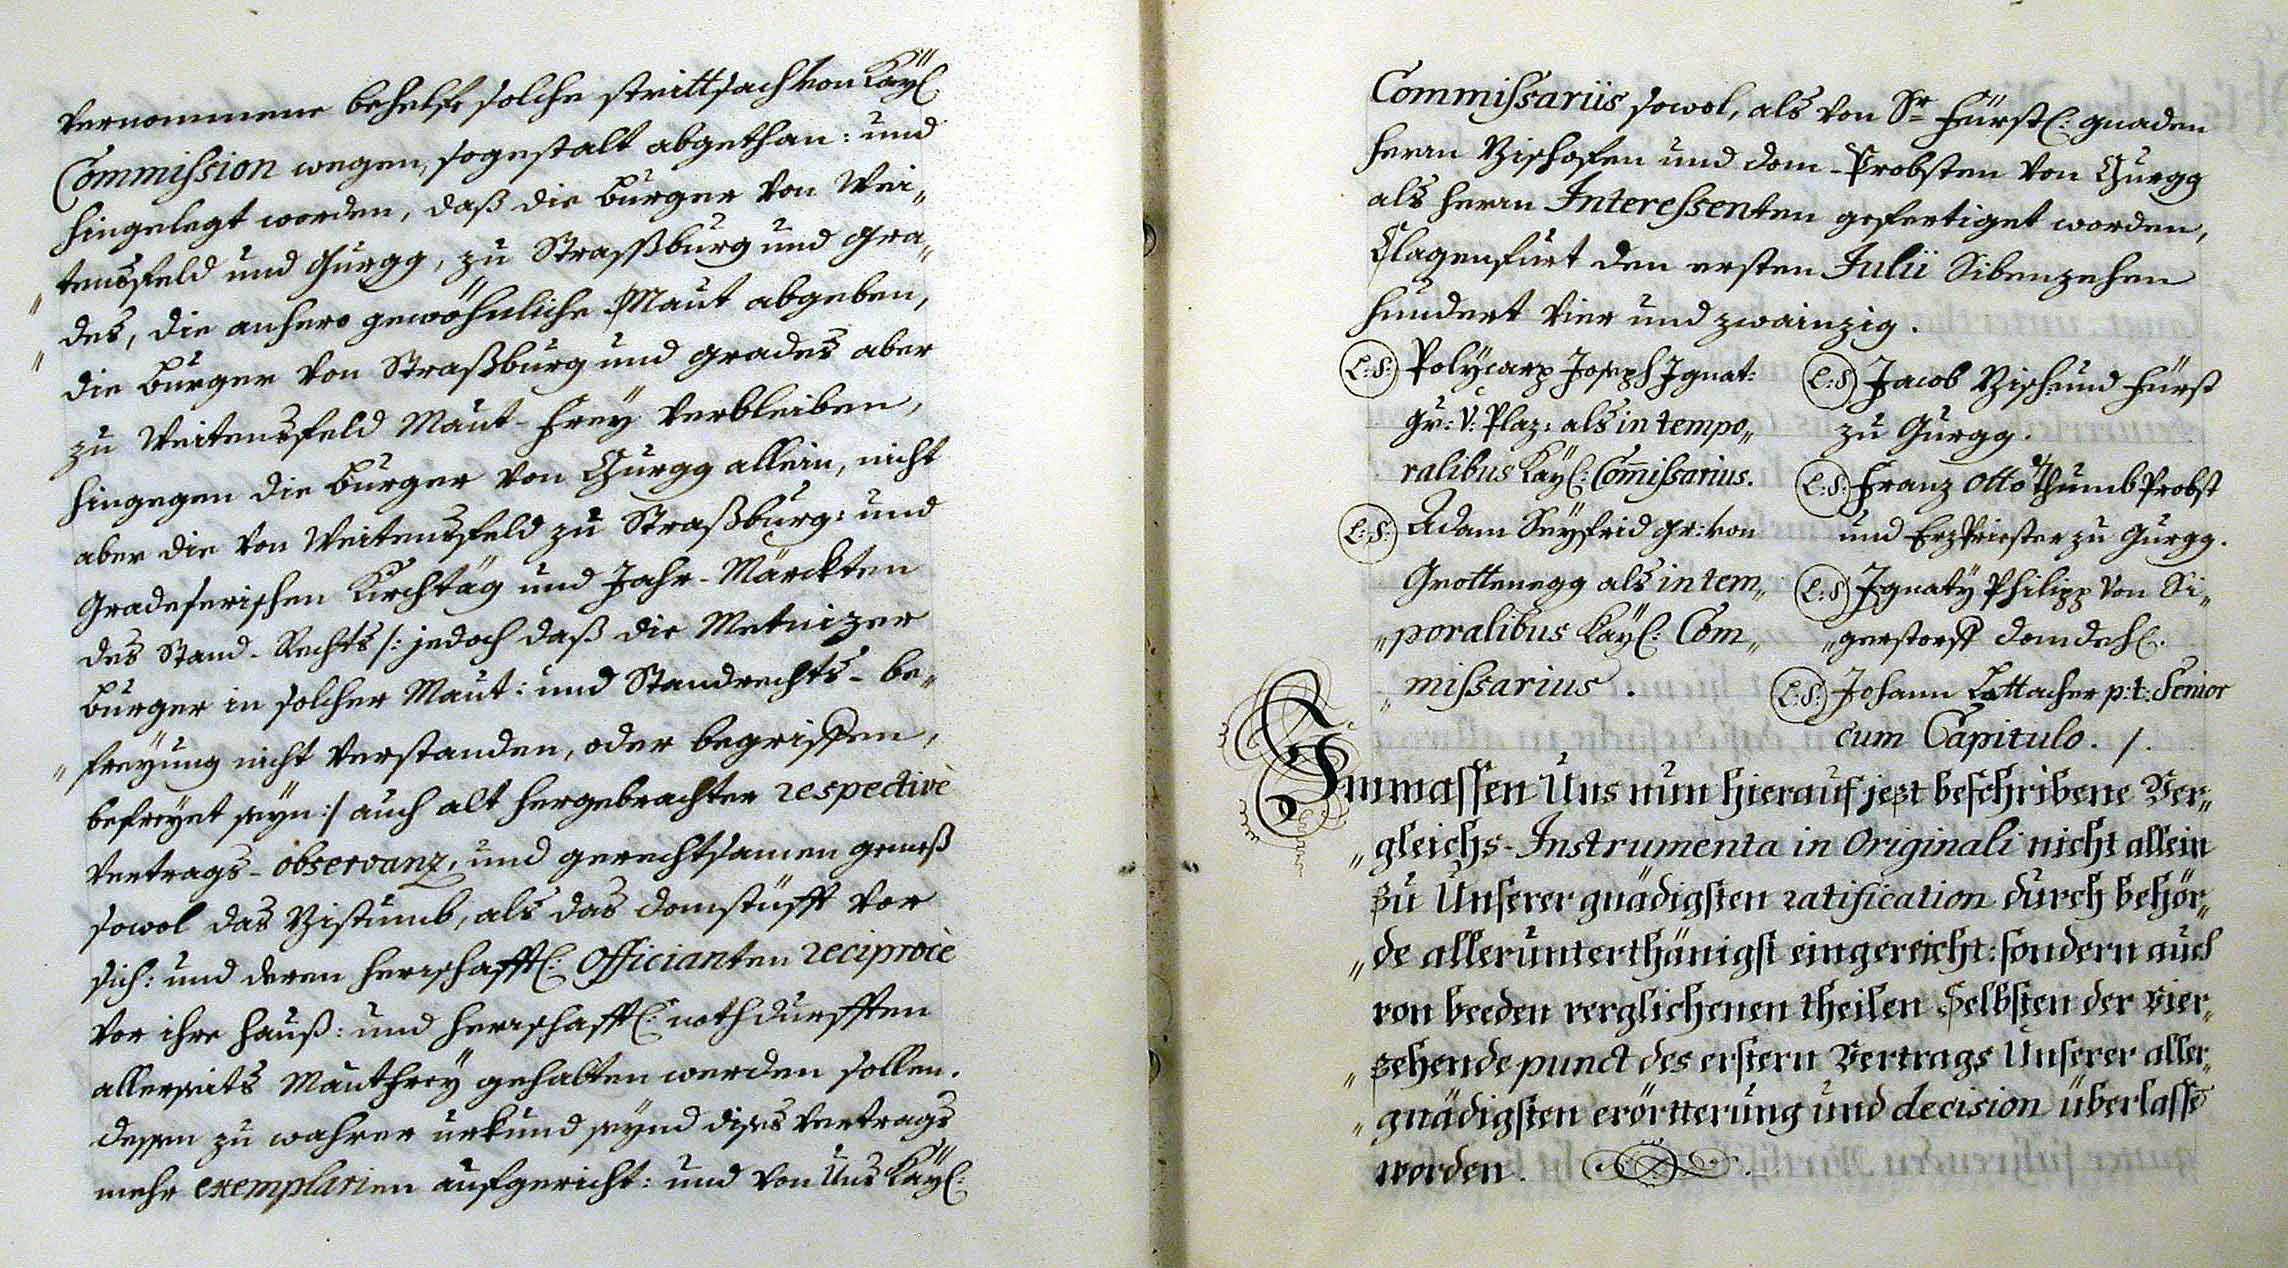 vernommene behelffe solche strittsach von Kayl:
Commission wegen, sogestalt abgethan: und
hingelegt worden, daß die burger von Wei„
„tensfeld und Gurgg, zu Straßburg und gra„
„des, die anhero gewöhnliche Maut abgeben,
die burger von Straßburg und grades aber
zu Weitensfeld Maut-frey verbleiben,
hingegen die burger von Gurgg allein, nicht
aber die von Weitensfeld zu Straßburg: und
Gradeserischen Kirchtäg und Jahr-Märckten
des Stand-Rechts /: jedoch daß die Metnizer
burger in solcher Maut: und Standrechts-be„
„freyung nicht verstanden, oder begriffen,
befreyet seyn :/ auch alt hergebrachter respectivè
vertrags-observanz, und gerechtsamen gemeß
sowol das Bistumb, als das domstüfft vor
sich: und deren herrschafftl: Officianten reciprocè
vor ihre hauß: und herrschafftl: nothdurfften
allerseits Mauthfrey gehalten werden sollen.
dessen zu wahrer urkund seynd dises vertrags
mehr exemplarien aufgericht: und von Uns Kayl:
Commissariis sowol, als von Sr. fürstl: gnaden
herrn Bischofen und dom-Probsten von Gurgg
als herrn Interessenten gefertiget worden,
Clagenfurt den ersten Julii Sibenzehen
hundert vier und zwainzig.
L:S: Polycarp Joseph Ignat:
gr: v: Plaz: als in tempo„
ralibus Kayl: Com̄issarius.
L:S: Adam Seyfrid gr: von
Grottenegg als in tem„
„poralibus Kayl: Com„
„missarius.
L:S: Jacob Bisch: und fürst
zu Gurgg.
L:S: Franz Otto Thumb Probst
und ErzPriester zu Gurgg.
L:S: Ignaty Philipp von Si„
„gerstorff domdech:
L:S: Johann Lattacher p:t: Senior
cum Capitulo. /.
Immassen Uns nun hierauf jezt beschribene Ver„
„gleichs-Instrumenta in Originali nicht allein
zu Unserer gnädigsten ratification durch behör„
„de allerunterthänigst eingereicht: sondern auch
von beeden verglichenen theilen Selbsten der vier„
„zehende punct des erstern Vertrags Unserer aller„
„gnädigsten erörtterung und decision überlassē
worden.